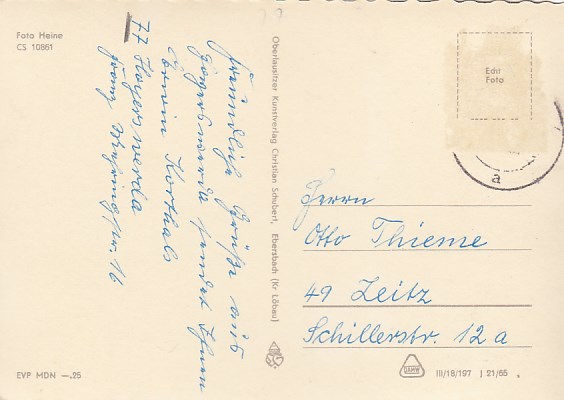 Foto Heine
CS 10861
Freundliche Grüße aus
Hoyerswerda sendet Ihnen
Erwin Korthals
77 Hoyerswerda
Franz Mehringstr. 16
Oberlausitzer Kunstverlag Christian Schubert, Ebersbach (Kr Löbau)
Echt
Foto
a
Herrn
Otto Thieme
49 Zeitz
Schillerstr. 12 a
EVP MDN —.25
DAMW
III/18/197 J 21/65